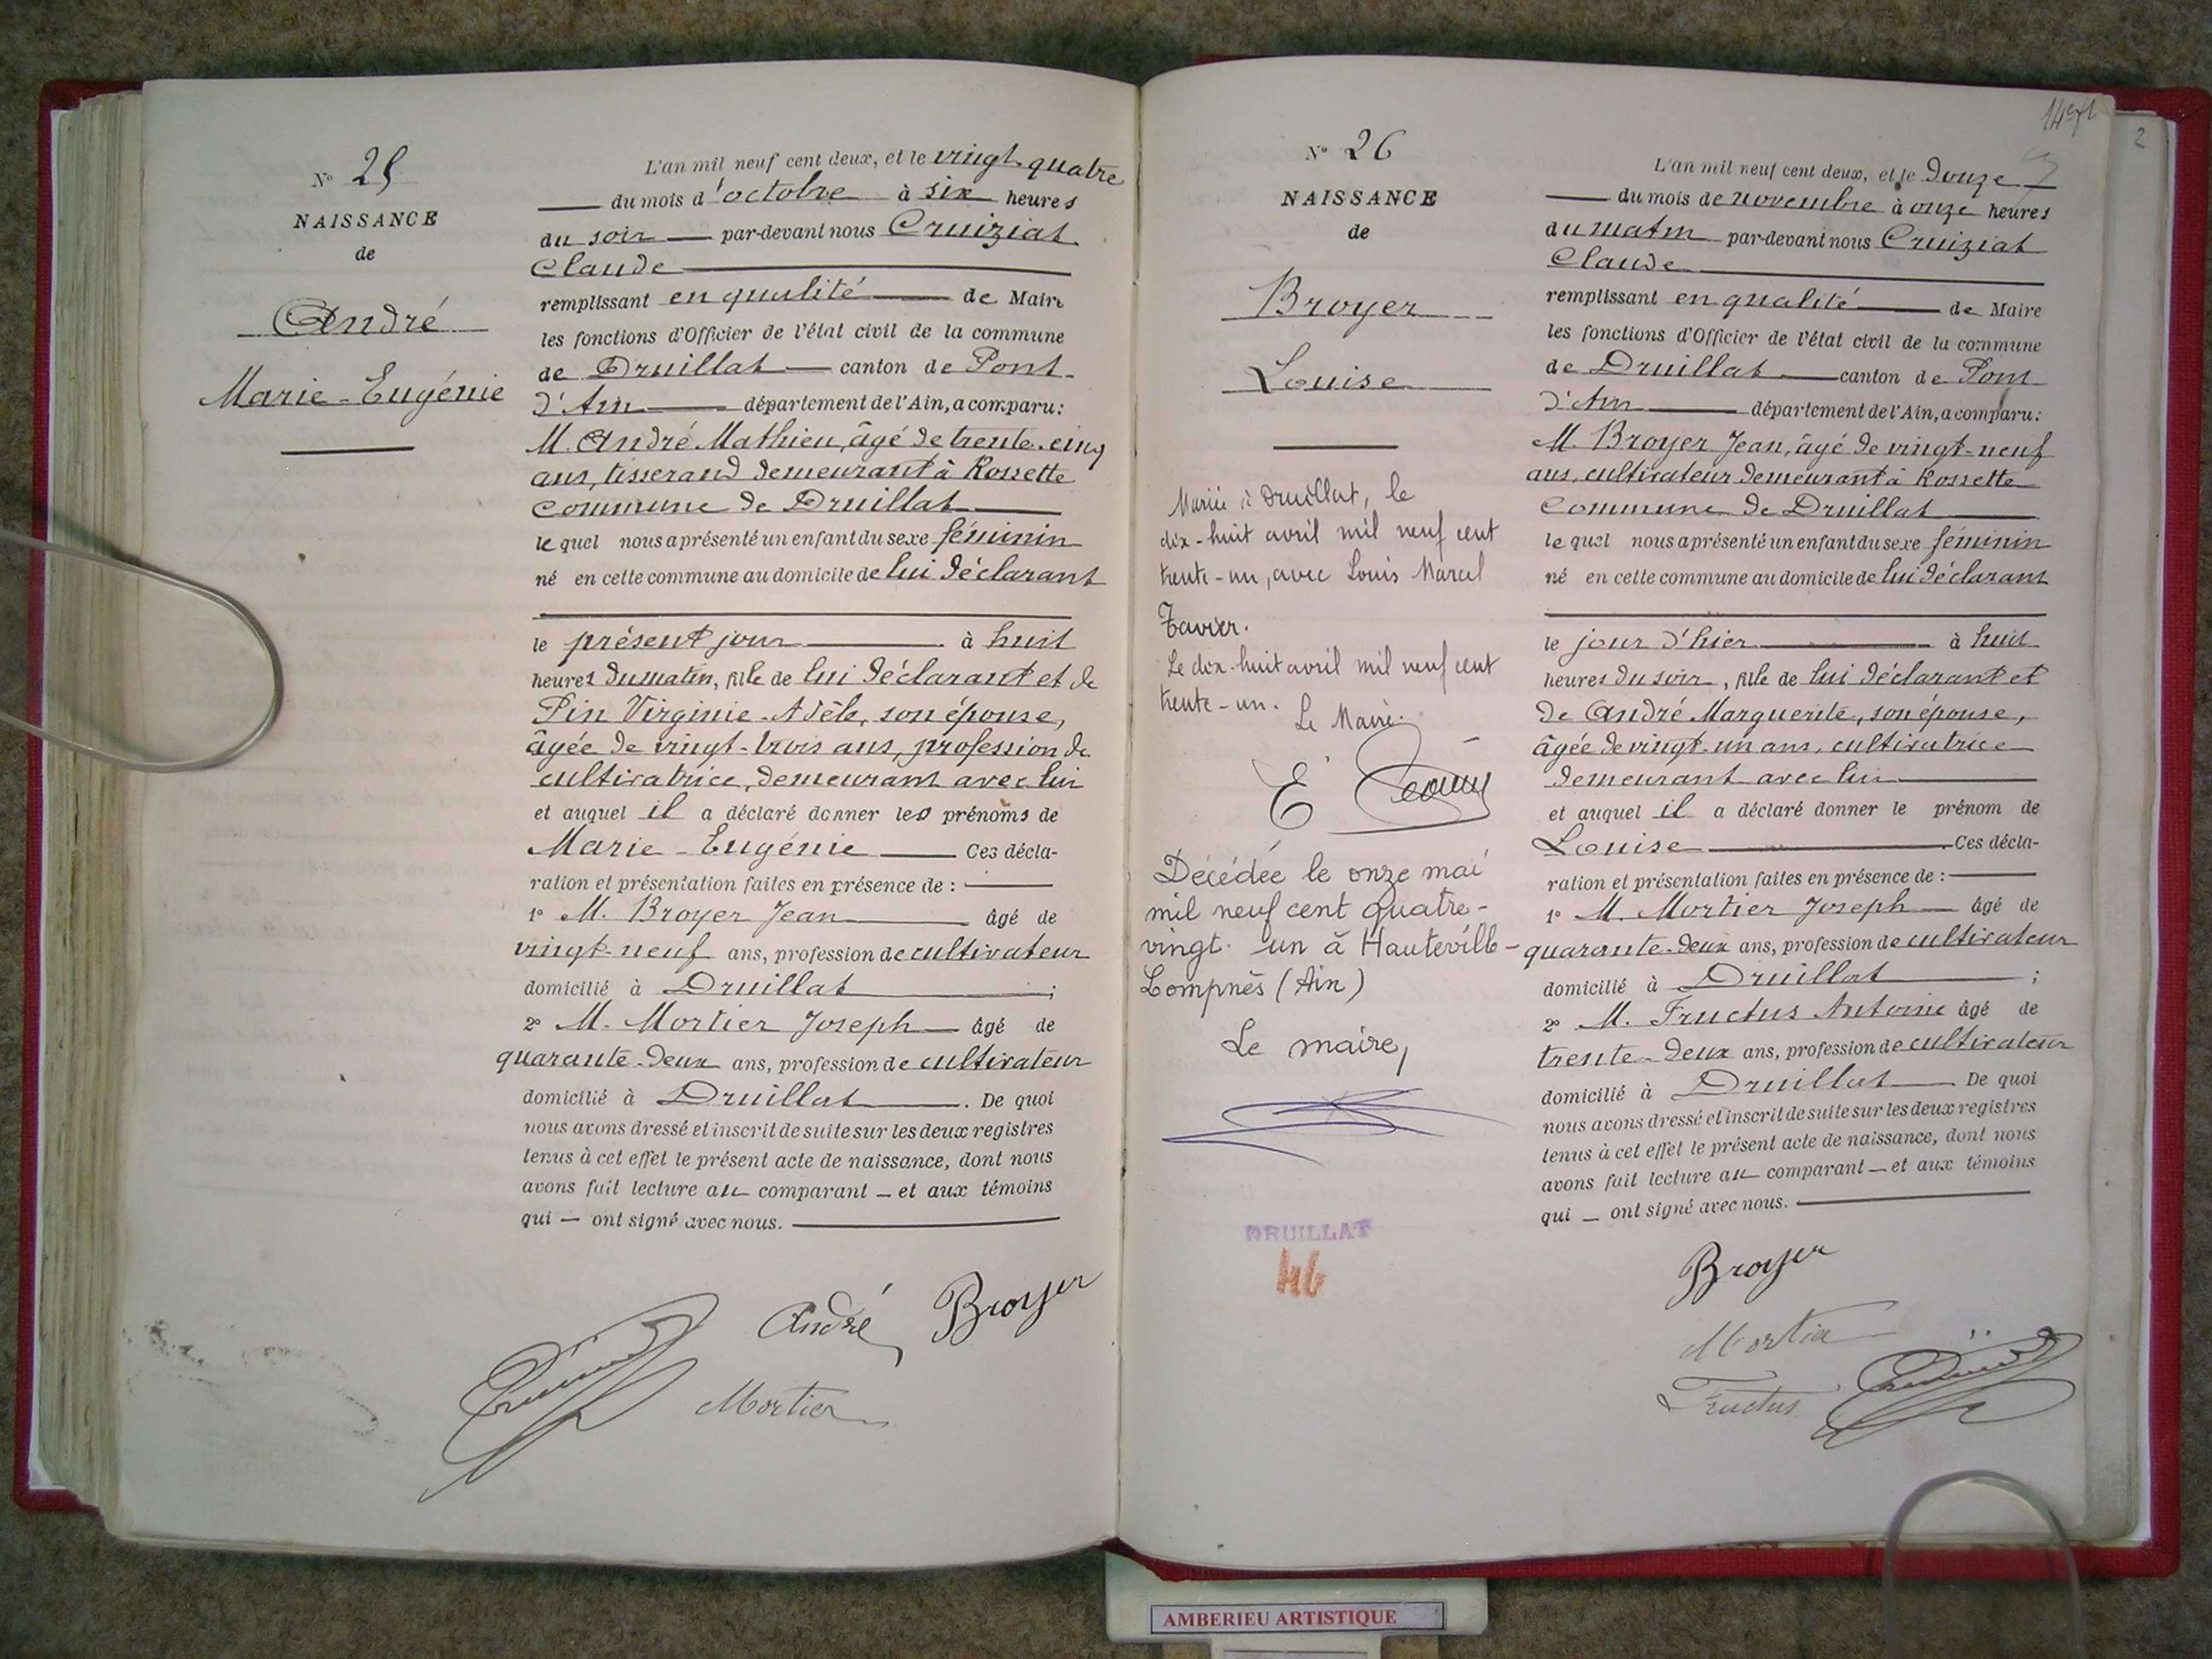 N° 25
NAISSANCE
de
André
Marie-Eugénie
L'an mil neuf cent deux, et le vingt quatre
du mois d'octobre à six heures
du soir par-devant nous Cruiziat
Claude
remplissant en qualité de Maire
les fonctions d'Officier de l'état civil de la commune
de Druillat canton de Pont-
d'Ain département de l'Ain, a comparu:
M. André Mathieu, âgé de trente-cinq
ans, tisserand demeurant à Rossette
commune de Druillat
lequel nous a présenté un enfant du sexe féminin
né en cette commune au domicile de lui déclarant
le présent jour à huit
heures du matin, fille de lui déclarant et de
Pin Virginie-Adèle, son épouse,
âgée de vingt-trois ans, profession de
cultivatrice, demeurant avec lui
et auquel il a déclaré donner les prénoms de
Marie-Eugénie Ces décla-
ration et présentation faites en présence de :
1° M. Broyer Jean âgé de
vingt-neuf ans, profession de cultivateur
domicilié à Druillat ;
2° M. Mortier Joseph âgé de
quarante-deux ans, profession de cultivateur
domicilié à Druillat . De quoi
nous avons dressé et inscrit de suite sur les deux registres
tenus à cet effet le présent acte de naissance, dont nous
avons fait lecture au comparant — et aux témoins
qui — ont signé avec nous.
André Broyer
Mortier
N° 26
NAISSANCE
de
Broyer
Louise
Mariée à Druillat, le
dix-huit avril mil neuf cent
trente-un, avec Louis Marcel
Tavier.
Le dix-huit avril mil neuf cent
trente-un. Le Maire.
Décédée le onze mai
mil neuf cent quatre-
vingt-un à Hauteville-
Lompnès (Ain)
Le maire,
DRUILLAT
46
2
L'an mil neuf cent deux, et le douze
du mois de novembre à onze heures
du matin par-devant nous Cruiziat
Claude
remplissant en qualité de Maire
les fonctions d'Officier de l'état civil de la commune
de Druillat canton de Pont
d'Ain département de l'Ain, a comparu:
M. Broyer Jean, âgé de vingt-neuf
ans, cultivateur demeurant à Rossette
commune de Druillat
lequel nous a présenté un enfant du sexe féminin
né en cette commune au domicile de lui déclarant
le jour d'hier à huit
heures du soir, fille de lui déclarant et
de André Marguerite, son épouse,
âgée de vingt-un ans, cultivatrice
demeurant avec lui
et auquel il a déclaré donner le prénom de
Louise Ces décla-
ration et présentation faites en présence de :
1° M. Mortier Joseph âgé de
quarante-deux ans, profession de cultivateur
domicilié à Druillat ;
2° M. Fructus Antoine âgé de
trente-deux ans, profession de cultivateur
domicilié à Druillat De quoi
nous avons dressé et inscrit de suite sur les deux registres
tenus à cet effet le présent acte de naissance, dont nous
avons fait lecture au comparant — et aux témoins
qui — ont signé avec nous.
Broyer
Mortier
Fructus
AMBERIEU ARTISTIQUE